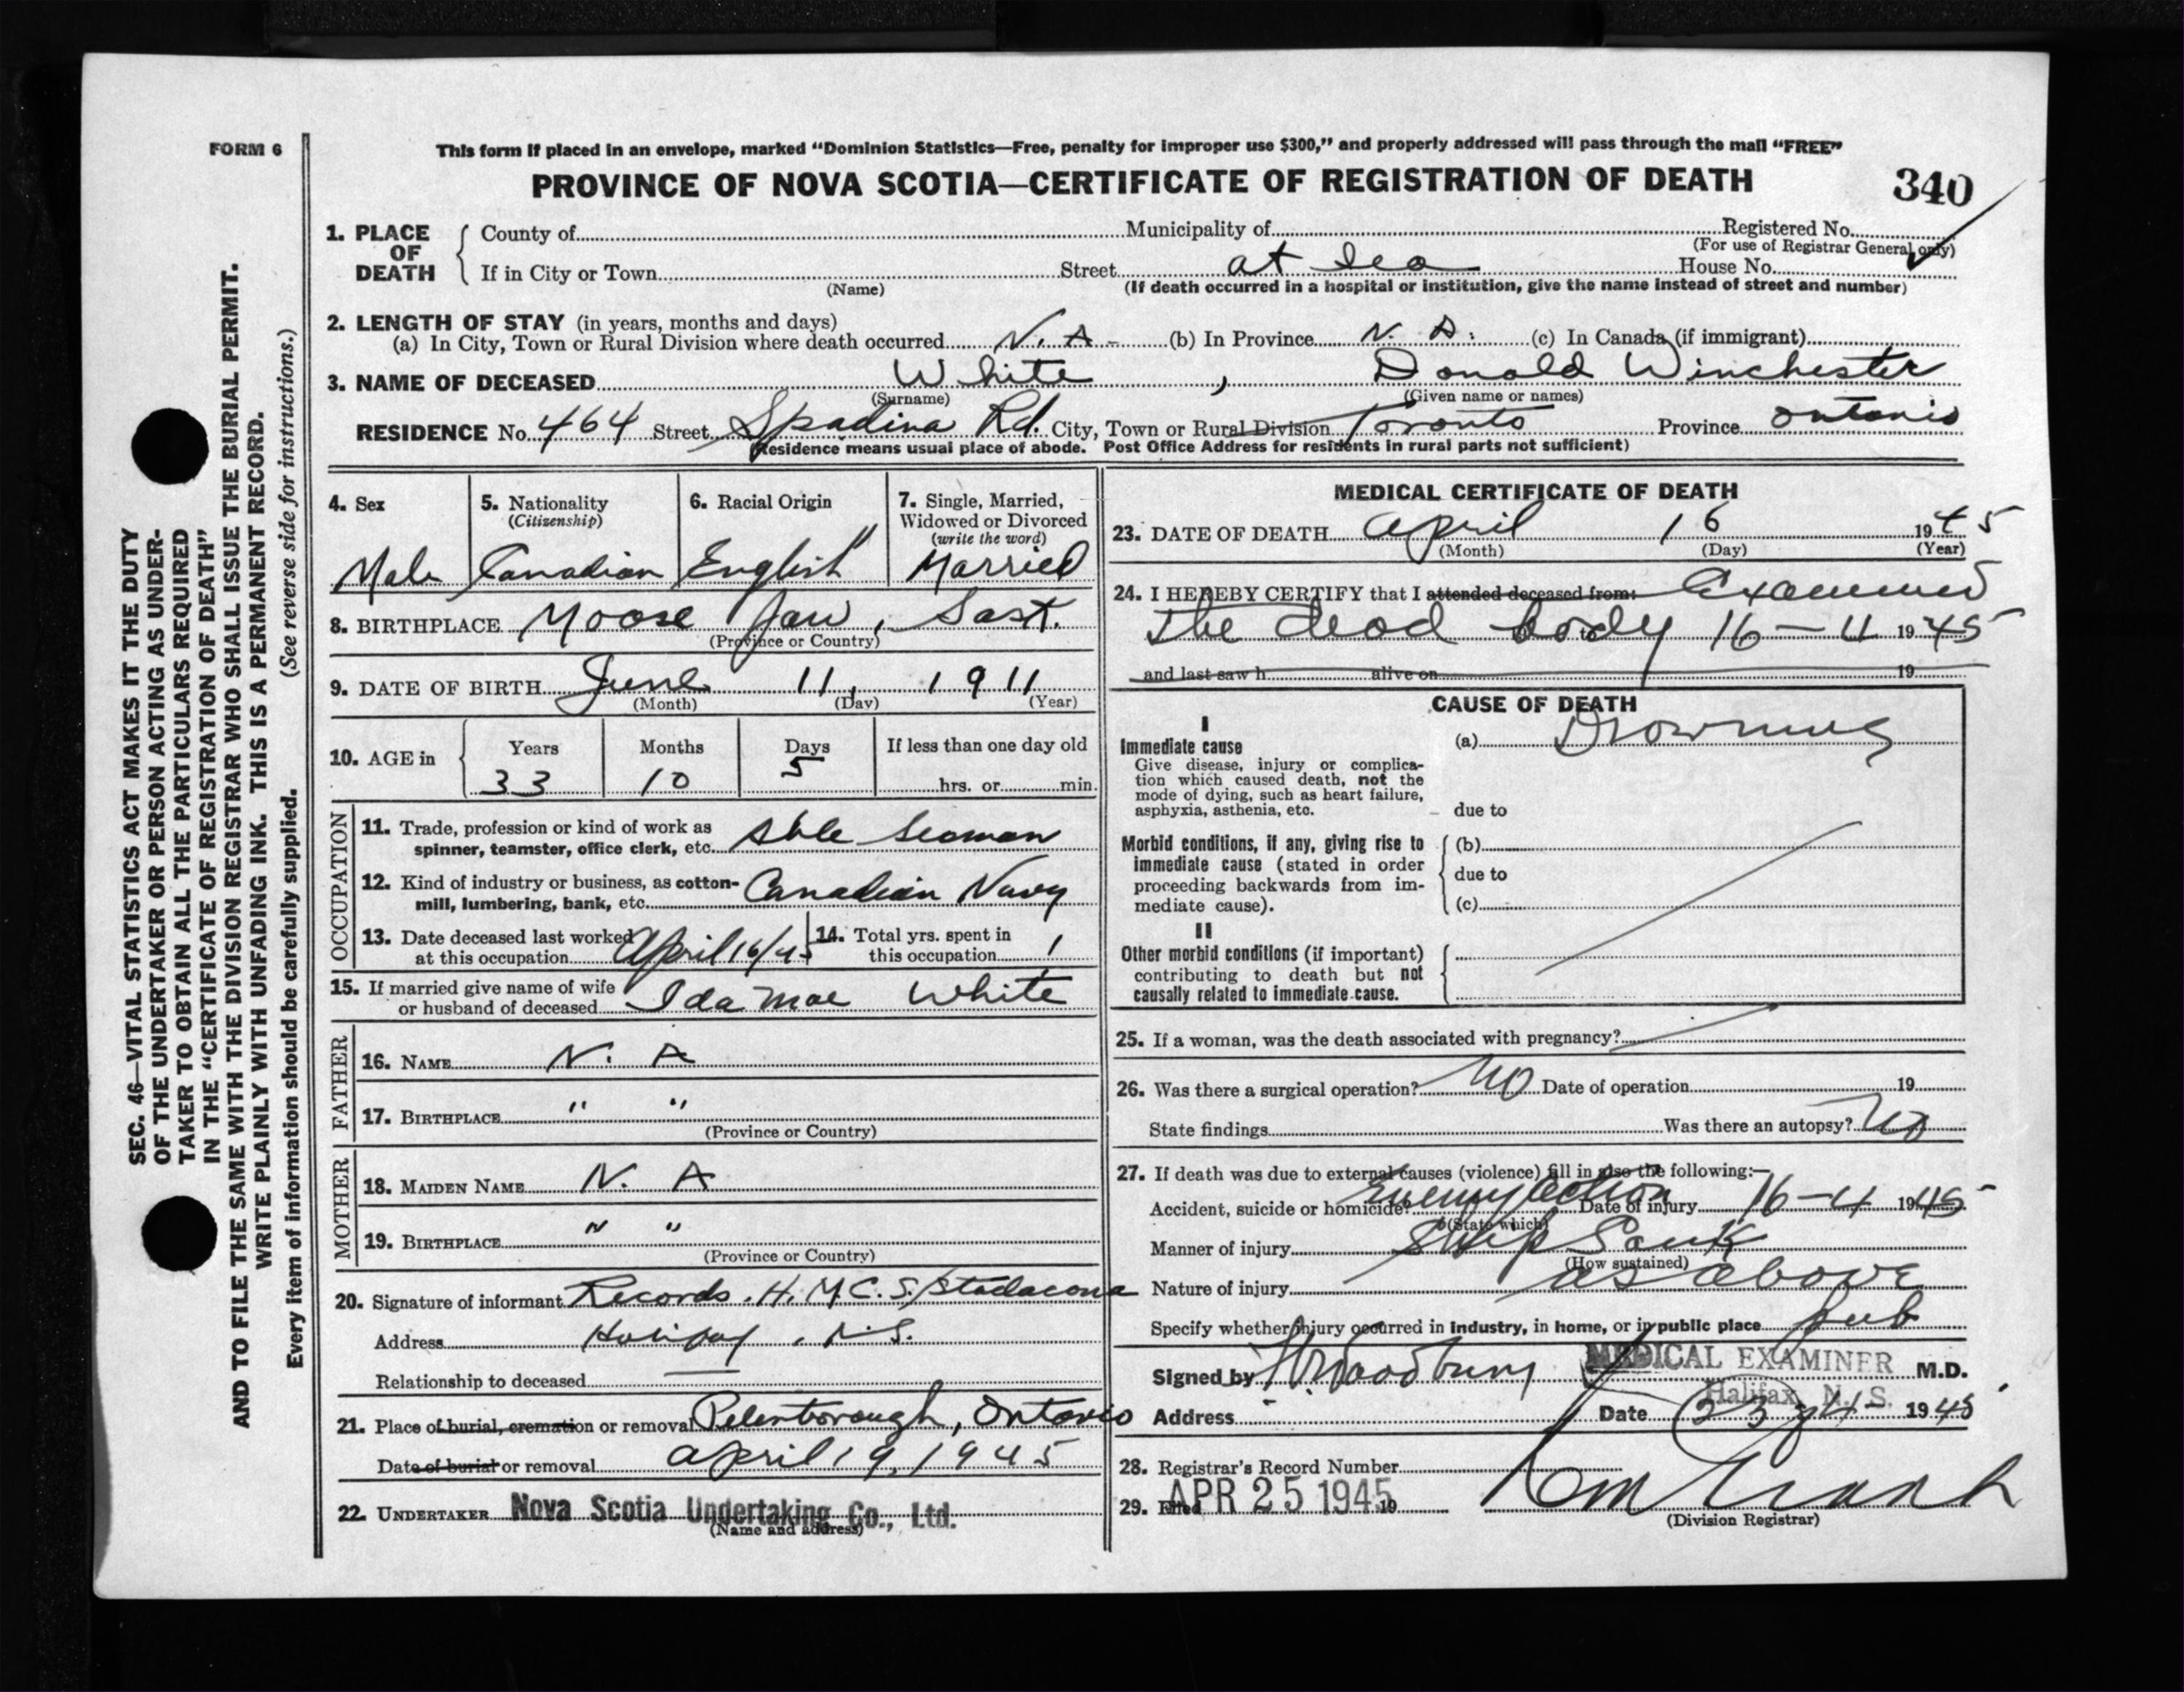 FORM 6
This form if placed in an envelope, marked “Dominion Statistics—Free, penalty for improper use $300,” and properly addressed will pass through the mail “FREE”
PROVINCE OF NOVA SCOTIA—CERTIFICATE OF REGISTRATION OF DEATH
340
1. PLACE OF DEATH
County of Municipality of Registered No.
(For use of Registrar General only)
If in City or Town Street at Sea House No.
(Name) (If death occurred in a hospital or institution, give the name instead of street and number)
2. LENGTH OF STAY (in years, months and days)
(a) In City, Town or Rural Division where death occurred N. A (b) In Province N. A. (c) In Canada (if immigrant)
3. NAME OF DECEASED White, Donald Winchester
(Surname) (Given name or names)
RESIDENCE No. 464 Street Spadina Rd. City, Town or Rural Division Toronto Province Ontario
(Residence means usual place of abode. Post Office Address for residents in rural parts not sufficient)
4. Sex
Male
5. Nationality
(Citizenship)
Canadian
6. Racial Origin
English
7. Single, Married,
Widowed or Divorced
(write the word)
Married
8. BIRTHPLACE Moose Jaw, Sask.
(Province or Country)
9. DATE OF BIRTH June 11, 1911
(Month) (Day) (Year)
10. AGE in
Years Months Days If less than one day old
33 10 5 hrs. or min.
OCCUPATION
11. Trade, profession or kind of work as
spinner, teamster, office clerk, etc. Able Seaman
12. Kind of industry or business, as cotton-
mill, lumbering, bank, etc. Canadian Navy
13. Date deceased last worked
at this occupation April 16/45
14. Total yrs. spent in
this occupation 1
15. If married give name of wife
or husband of deceased Ida Mae White
FATHER
16. NAME N. A
17. BIRTHPLACE " "
(Province or Country)
MOTHER
18. MAIDEN NAME N. A
19. BIRTHPLACE " "
(Province or Country)
20. Signature of informant Records. H.M.C.S. Stadacona
Address Halifax, N.S.
Relationship to deceased —
21. Place of burial, cremation or removal Peterborough, Ontario
Date of burial or removal April 19, 1945
22. UNDERTAKER Nova Scotia Undertaking Co., Ltd.
(Name and address)
MEDICAL CERTIFICATE OF DEATH
23. DATE OF DEATH April 16 1945
(Month) (Day) (Year)
24. I HEREBY CERTIFY that I attended deceased from: Examined
the dead body 16-4 1945
and last saw h alive on 19
CAUSE OF DEATH
I
Immediate cause
Give disease, injury or complica-
tion which caused death, not the
mode of dying, such as heart failure,
asphyxia, asthenia, etc.
(a) Drowning
due to
Morbid conditions, if any, giving rise to
immediate cause (stated in order
proceeding backwards from im-
mediate cause).
(b)
due to
(c)
II
Other morbid conditions (if important)
contributing to death but not
causally related to immediate cause.
25. If a woman, was the death associated with pregnancy?
26. Was there a surgical operation? No Date of operation 19
State findings Was there an autopsy? No
27. If death was due to external causes (violence) fill in also the following:—
Accident, suicide or homicide? Enemy action Date of injury 16-4 1945
(State which)
Manner of injury Ship Sank
(How sustained)
Nature of injury as above
Specify whether injury occurred in industry, in home, or in public place pub
Signed by M.D.
MEDICAL EXAMINER
Halifax, N. S.
Address Date 23 4 1945
28. Registrar's Record Number
29. Filed APR 25 1945 19
(Division Registrar)
SEC. 46—VITAL STATISTICS ACT MAKES IT THE DUTY
OF THE UNDERTAKER OR PERSON ACTING AS UNDER-
TAKER TO OBTAIN ALL THE PARTICULARS REQUIRED
IN THE “CERTIFICATE OF REGISTRATION OF DEATH”
AND TO FILE THE SAME WITH THE DIVISION REGISTRAR WHO SHALL ISSUE THE BURIAL PERMIT.
WRITE PLAINLY WITH UNFADING INK. THIS IS A PERMANENT RECORD.
Every item of information should be carefully supplied. (See reverse side for instructions.)